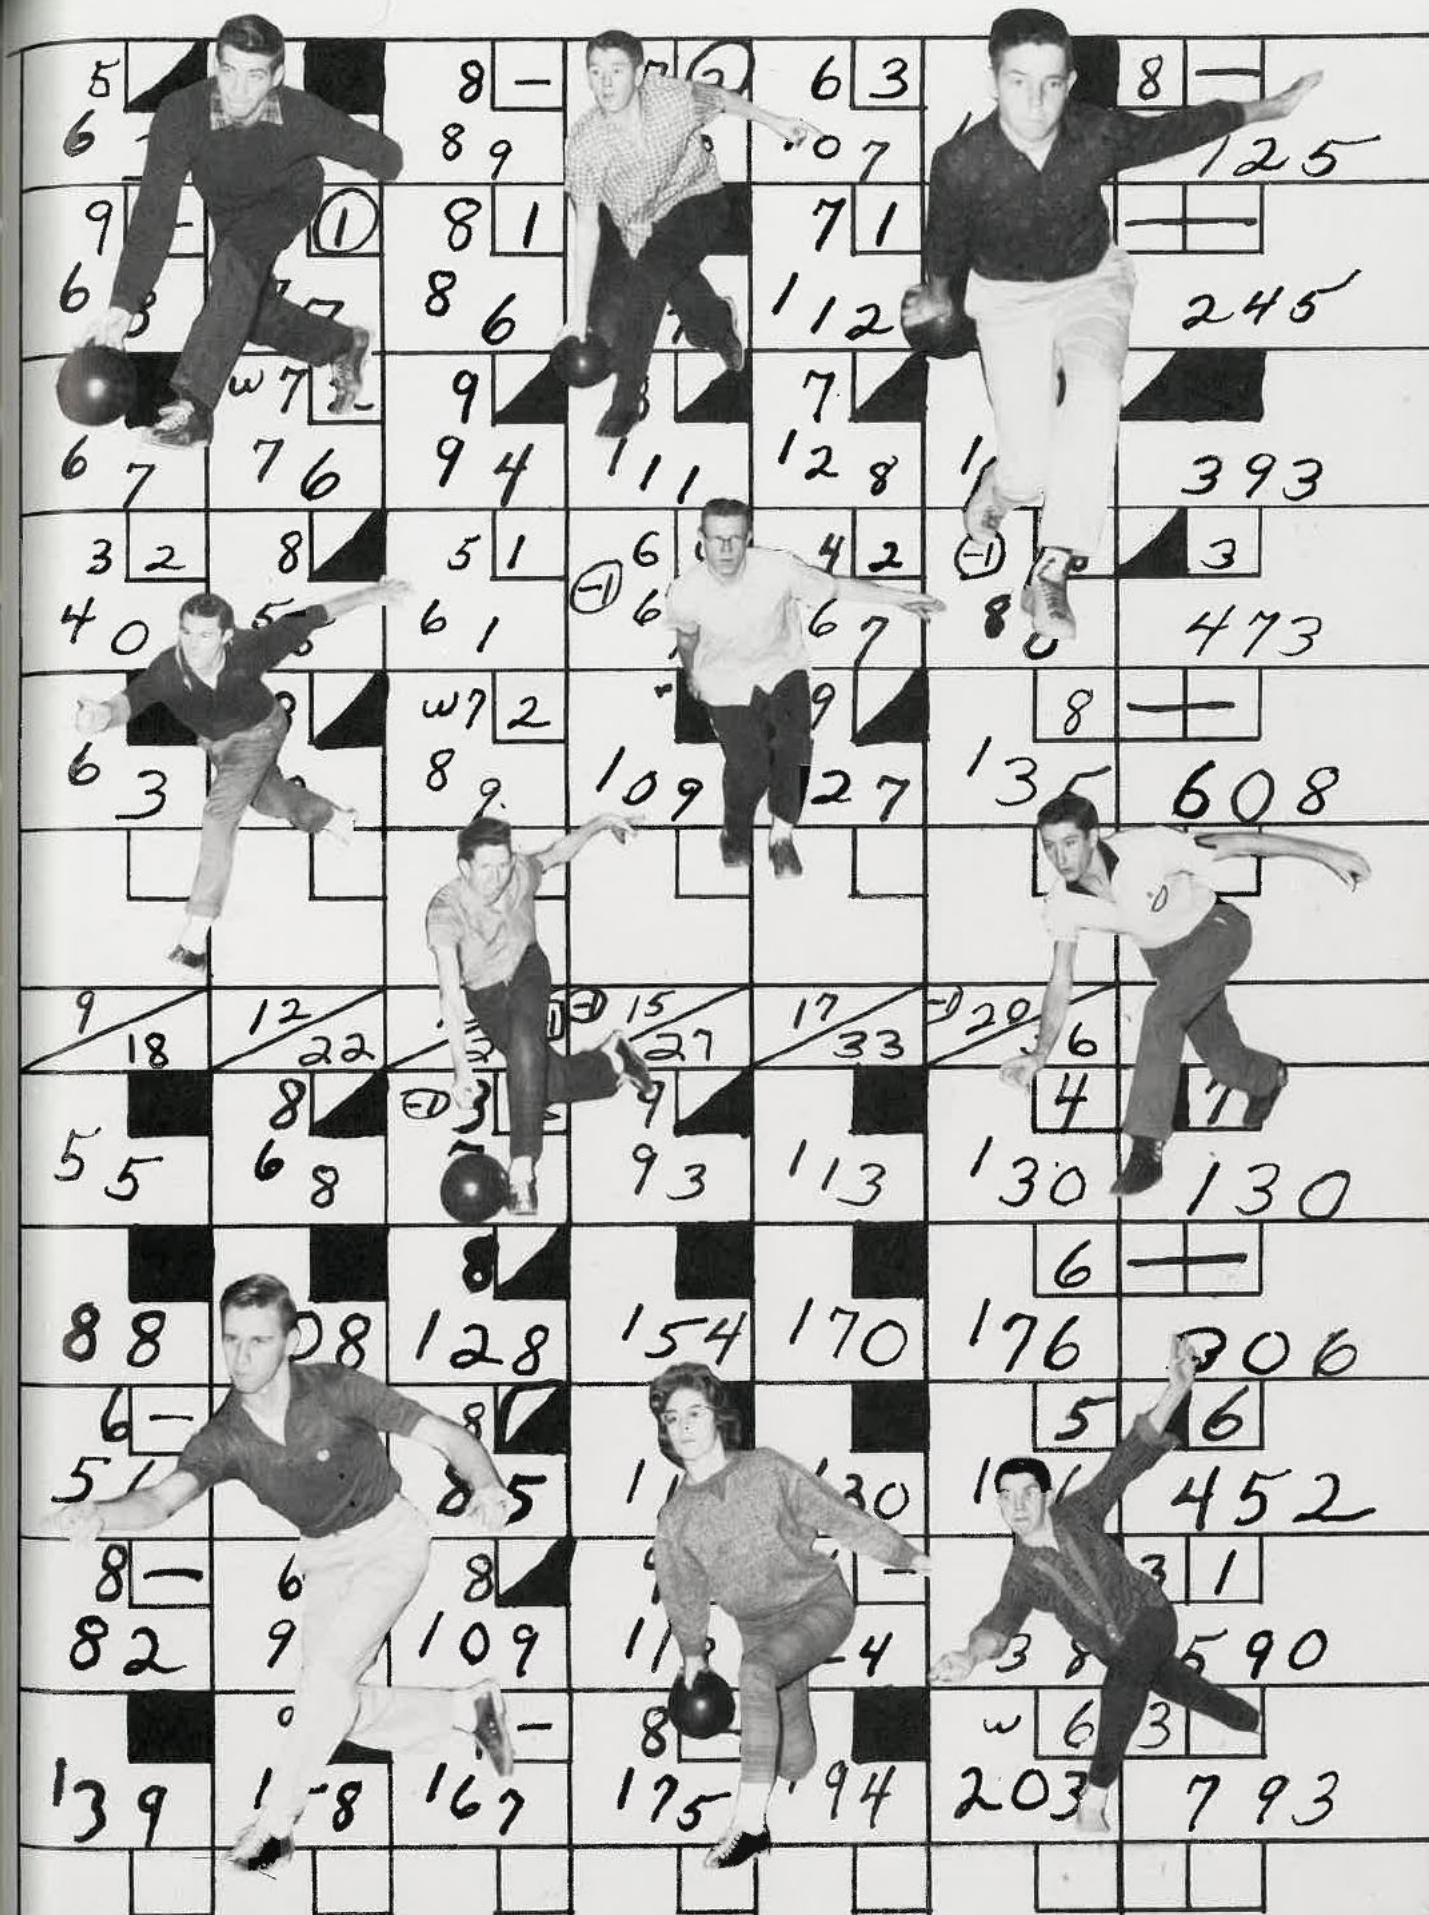 5 8 — 6 3 8 —
6 8 9 0 7 1 2 5
9 — 1 8 1 7 1 — —
6 8 6 1 1 2 2 4 5
w 7 9 7
6 7 7 6 9 4 1 1 1 1 2 8 3 9 3
3 2 8 5 1 6 4 2 -1 3
-1
4 0 5 6 1 6 6 7 8 4 7 3
w 7 2 9 8 — —
6 3 8 9 1 0 9 2 7 1 3 5 6 0 8
9 12 -1 15 17 -1 20
18 22 2 27 33 6
8 -1 3 9 4 7
5 5 6 8 9 3 1 1 3 1 3 0 1 3 0
8 6 — —
8 8 0 8 1 2 8 1 5 4 1 7 0 1 7 6 3 0 6
6 — 8 5 6
5 8 5 1 3 0 1 4 5 2
8 — 6 8 — 3 1
8 2 9 1 0 9 1 1 4 3 8 5 9 0
— 8 — w 6 3
1 3 9 1 8 1 6 7 1 7 5 9 4 2 0 3 7 9 3